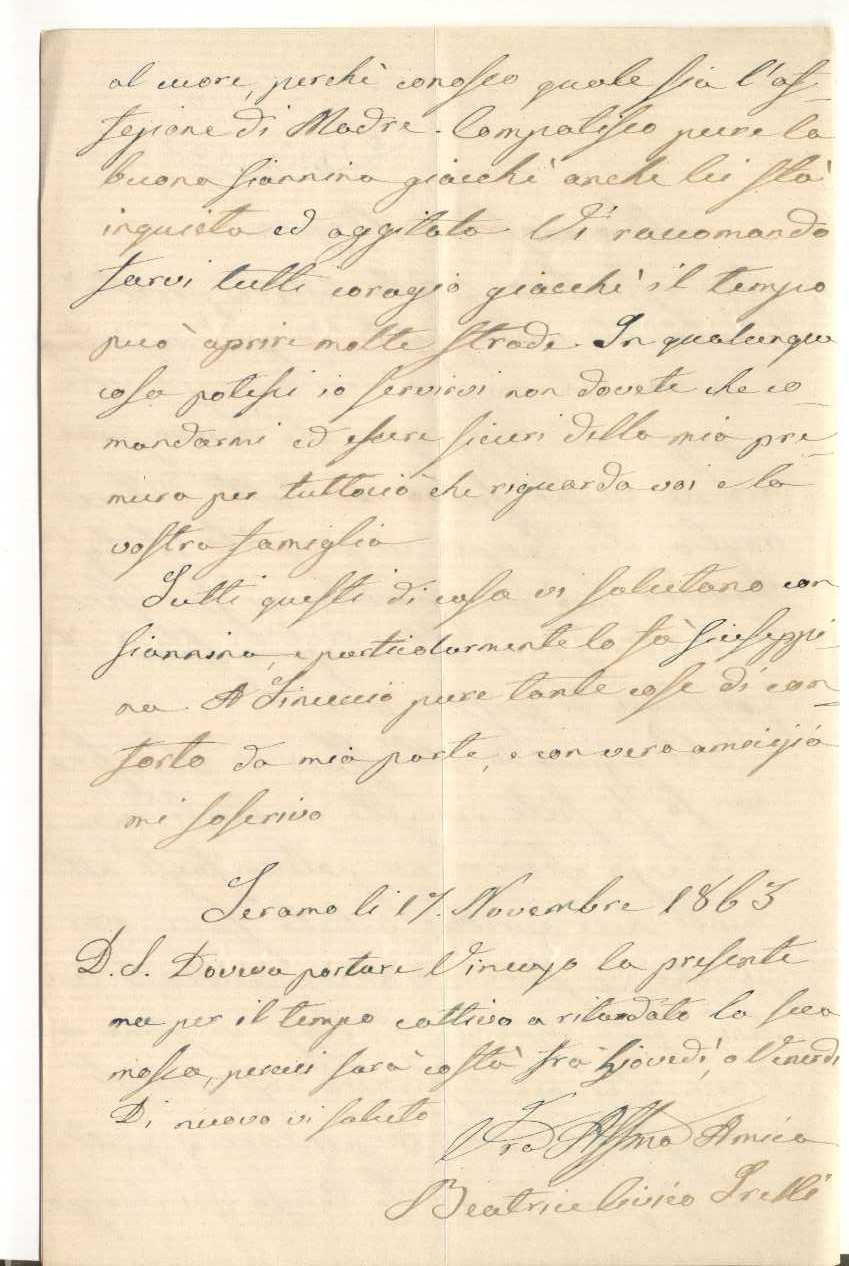 al cuore, perchè conosco quale sia l'af-
fezione di Madre. Compatisco pure la
buona Giannina giacchè anche lei stà
inquieta ed aggitata. Vi raccomando
farvi tutti coragio giacchè il tempo
può aprire molte strade. In qualunque
cosa potessi io servirvi non dovete che co-
mandarmi ed essere sicuri della mia pre-
mura per tuttociò che riguarda voi e la
vostra famiglia
Tutti questi di casa vi salutano con
Giannina, e particolarmente lo fà Giuseppi-
na. A Tinuccio pure tante cose di con-
forto da mia parte, e con vera amicizia
mi soscrivo
Teramo li 17. Novembre 1863
P.S. Doveva portare Vincenzo la presente
ma per il tempo cattivo a ritardato la sua
mossa, percui sarà costà fra Giovedì, o Venerdì
Di nuovo vi saluto
Vra Affma Amica
Beatrice Civico